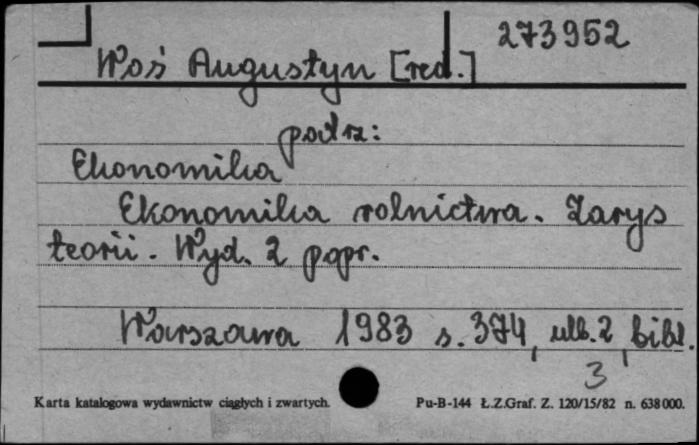 273952
Woś Augustyn [red.]
patrz:
Ekonomika
Ekonomika rolnictwa. Zarys
teorii. Wyd. 2 popr.
Warszawa 1983 s. 374, ulb. 2, bibl.
3
Karta katalogowa wydawnictw ciągłych i zwartych. Pu-B-144 Ł.Z.Graf. Z. 120/15/82 n. 638000.